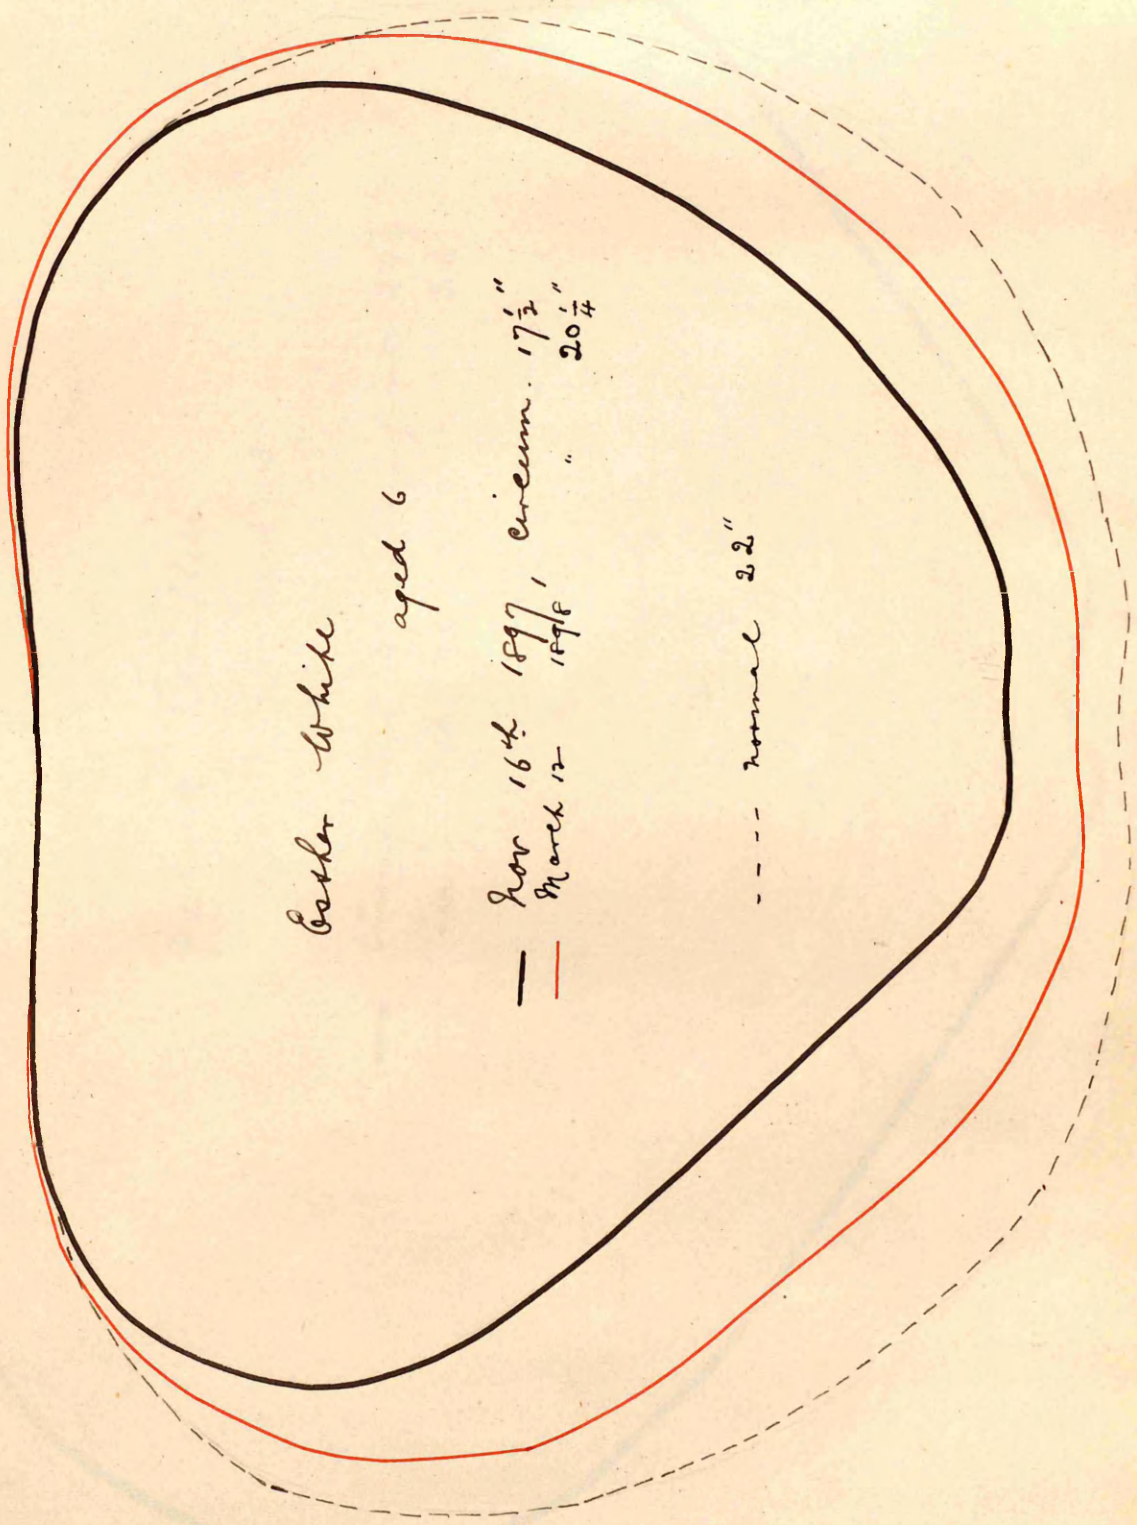 Esther White
aged 6
— Nov 16th 1897, circum. 17½"
— March 12 1898, " 20¼"
---- normal 22"